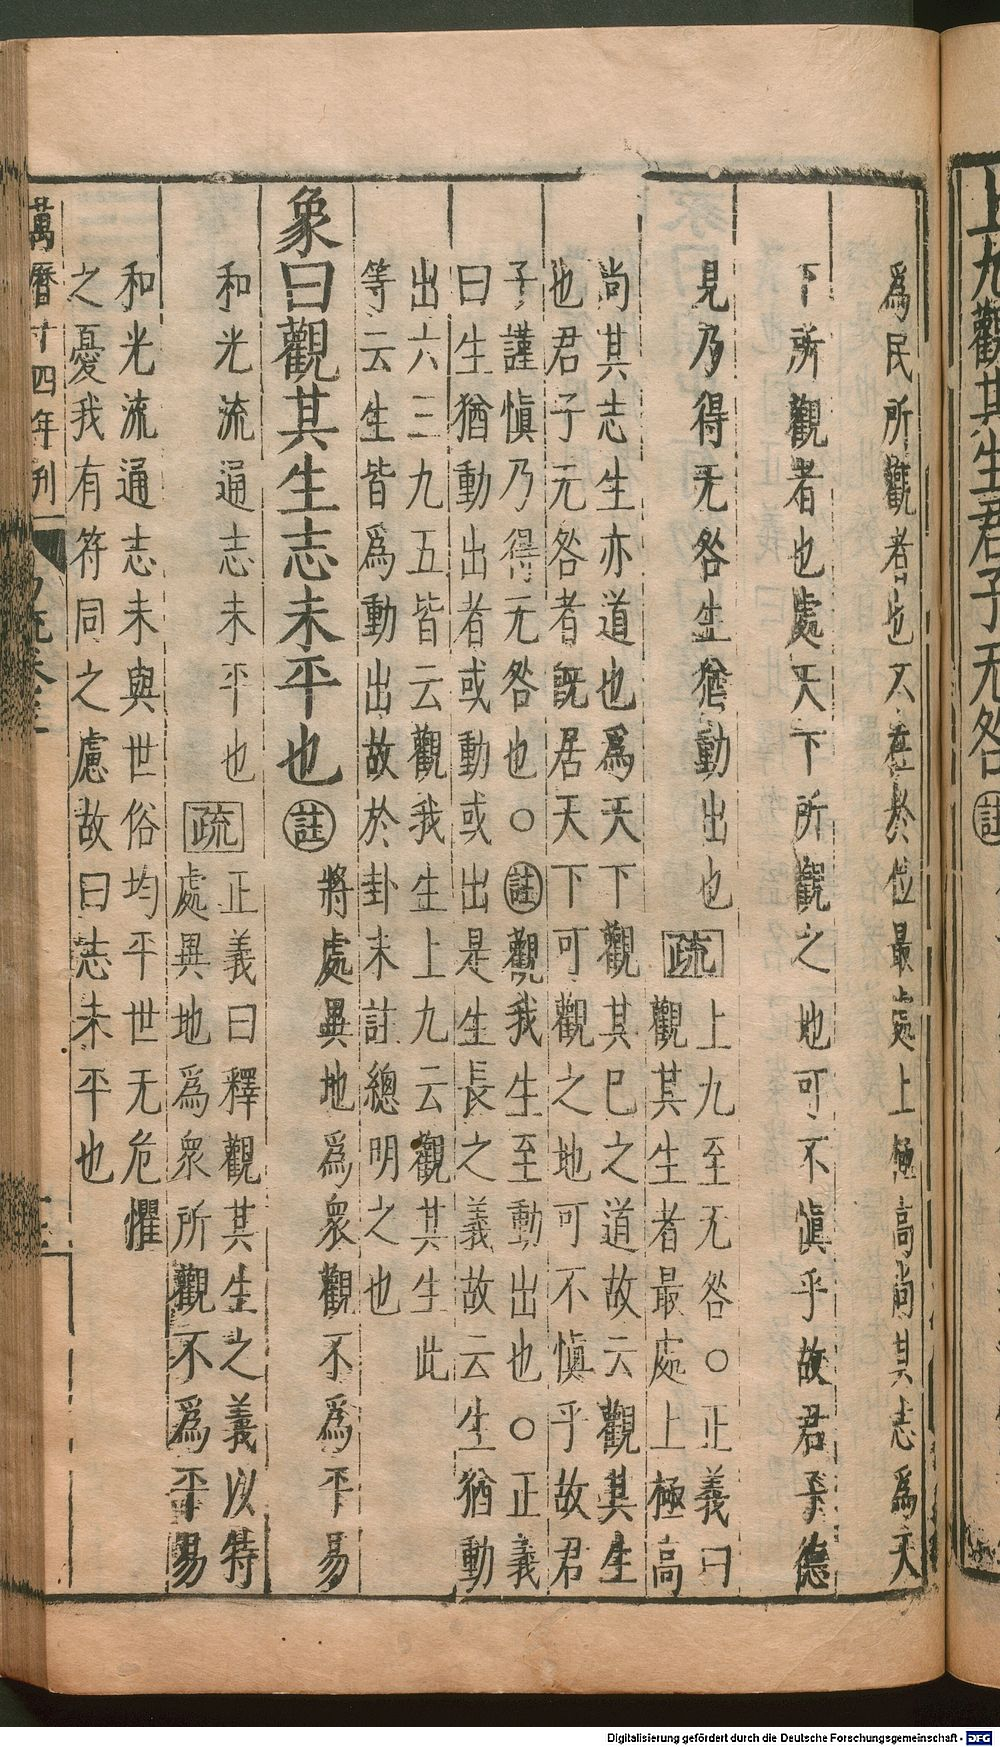 上九觀其生君子无咎註
爲民所觀者也不在於位最處上極高尚其志爲天
下所觀者也處天下所觀之地可不愼乎故君子德
見乃得无咎生猶動出也疏
上九至无咎○正義曰
觀其生者最處上極高
尚其志生亦道也爲天下觀其己之道故云觀其生
也君子无咎者旣居天下可觀之地可不愼乎故君
子謹愼乃得无咎也○註觀我生至動出也○正義
曰生猶動出者或動或出是生長之義故云生猶動
出六三九五皆云觀我生上九云觀其生此
等云生皆爲動出故於卦末註總明之也
象曰觀其生志未平也註
將處異地爲衆觀不爲平易
和光流通志未平也疏
正義曰釋觀其生之義以特
處異地爲衆所觀不爲平易
和光流通志未與世俗均平世无危懼
之憂我有符同之慮故曰志未平也
萬曆十四年刊
易疏卷三
Digitalisierung gefördert durch die Deutsche Forschungsgemeinschaft - DFG